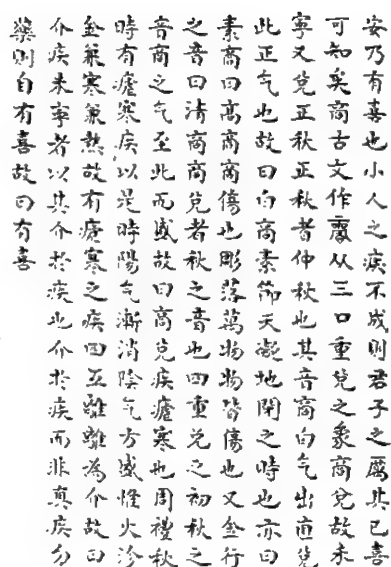 安乃有喜也小人之疾不成則君子之厲其已喜
可知矣商古文作从三口重兌之象商兌故未
寧又兌正秋正秋者仲秋也其音商白气出直兌
此正气也故曰白商素節天凝地閉之時也亦曰
素商曰高商商傷也彫落萬物物皆傷也又金行
之音曰清商商兌者秋之音也四重兌之初秋之
音商之气至此而盛故曰商兌疾瘧寒也周禮秋
時有瘧寒疾以是時陽气漸消陰气方盛惟火沴
金兼寒兼熱故有瘧寒之疾四互離離為介故曰
介疾未寧者以其介於疾也介於疾而非真疾勿
藥則自有喜故曰有喜